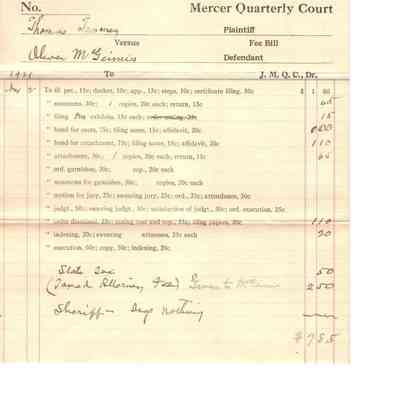 No. Mercer Quarterly Court
Thomas Plaintiff
Versus Fee Bill
Oliver McGinnis Defendant
To J. M. Q. C., Dr.
To fil. pet., 15c; docket, 10c; app., 15c; steps, 10c; certificate filing, 50c $ 1 00
" summons, 30c; / copies, 20c each; return, 15c 65
" filing exhibits, 15c each; 15
" bond for costs, 75c; filing same, 15c; affidavit, 20c
" bond for attachment, 75c; filing same, 15c; affidavit, 20c 1 10
" attachment, 50c; / copies, 20c each, return, 15c 65
" ord. garnishee, 20c; cop., 20c each
" summons for garnishee, 30c; copies, 20c each
" motion for jury, 25c; swearing jury, 25c; ord., 25c; attendance, 50c
" judgt., 50c; swearing judgt., 50c; satisfaction of judgt., 50c; ord. execution, 25c
" order dismissed, 25c; taxing cost and cop., 25c; filing papers, 50c 1 10
" indexing, 20c; swearing witnesses, 25c each 20
" execution, 60c; copy, 50c; indexing, 20c
State tax 50
(Taxed Attorney Fee) 2 50
Sheriff - Says nothing
$ 7 85